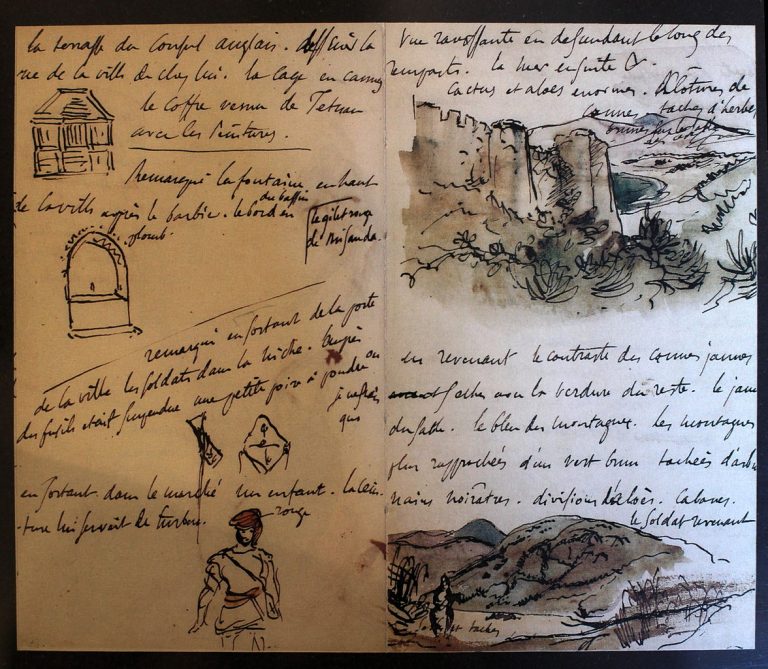 la terrasse du consul anglais. dessiné la
rue de la ville de chez lui. la cage en cannes
le coffre venu de Tetuan
avec les peintures.
Remarqué la fontaine en haut
de la ville après le barbier. le bord du bassin en
plomb.
le gilet rouge
de
remarqué en sortant de la porte
de la ville les soldats dans la niche. Auprès
des fusils était suspendue une petite poire à poudre ou
je ne sais
quoi
en sortant dans le marché un enfant. la cein-
ture lui servait de turban.
rouge
Vue ravissante en descendant le long des
remparts. la mer ensuite &.
Cactus et aloès énormes. clôtures de
cannes taches d'herbes
brunes sur le sable
en revenant le contraste des cannes jaunes
sèches avec la verdure du reste. le jaune
du sable. le bleu des montagnes. les montagnes
plus rapprochées d'un vert brun tachées d'arbres
nains noirâtres. divisions d'aloès. Cabanes.
le soldat revenant
et taches